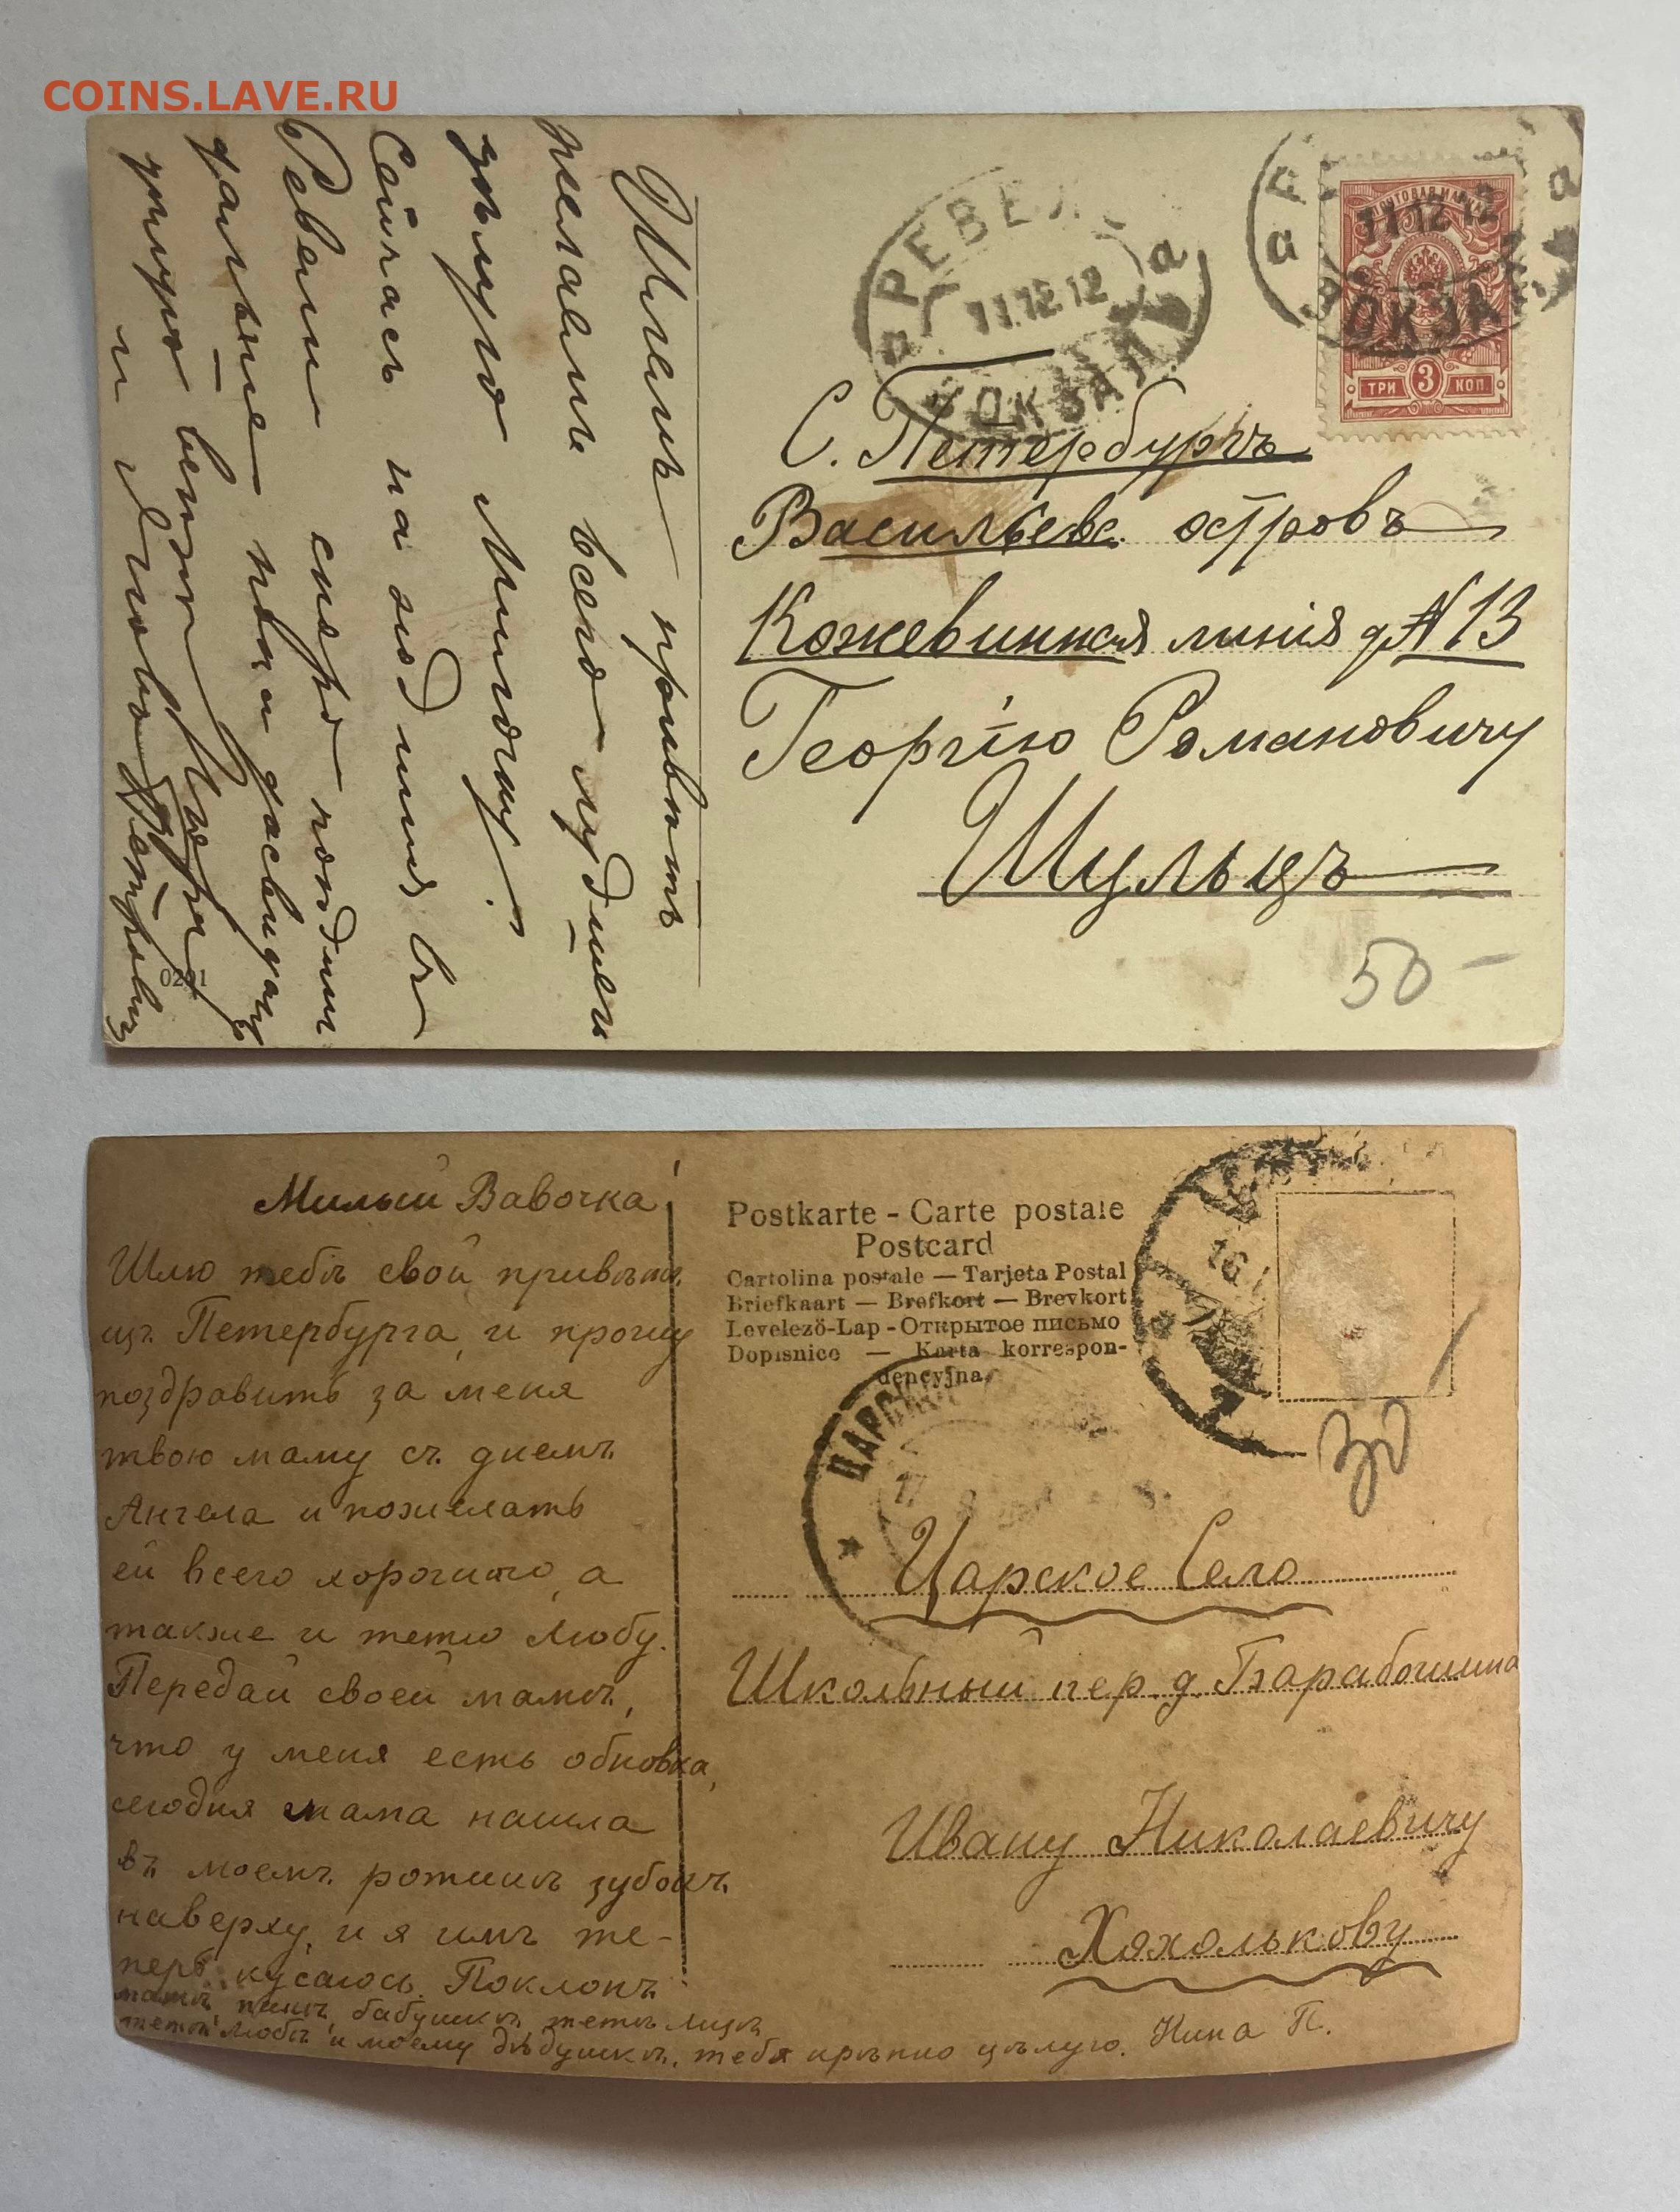 COINS.LAVE.RU
Шлемъ приветъ
желаемъ всего лучшего
цѣлую Мишошу.
Сейчасъ находимся въ
Ревели скоро пойдемъ
дальше пока досвиданья
цѣлую
и
0201
РЕВЕЛЬ
а
11 12 12
ВОКЗАЛ
а
а
ПОЧТОВАЯ МАРКА
11 12 12
ВОКЗА
ТРИ 3 КОП
С. Петербургъ
Васильевс. островъ
Кожевинная линія д № 13
Георгію Романовичу
Шульцъ
50 –
Милый Вавочка!
Шлю тебѣ свой привѣтъ
изъ Петербурга, и прошу
поздравить за меня
твою маму съ днемъ
Ангела и пожелать
ей всего хорошаго, а
также и тетю Любу.
Передай своей мамѣ,
что у меня есть обновка,
сегодня мама нашла
въ моемъ ротикѣ зубокъ
наверху, и я имъ те-
перь кусаюсь. Поклонъ
мамѣ, папѣ, бабушкѣ, тетѣ Лизѣ
тетѣ Любѣ и моему дѣдушкѣ, тебя крѣпко цѣлую. Нина П.
Postkarte - Carte postale
Postcard
Cartolina postale — Tarjeta Postal
Briefkaart — Brefkort — Brevkort
Levelezö-Lap - Открытое письмо
Dopisnice — Karta korrespon-
dencyjna
16
1
ЦАРСКО
17
8
30
Царское Село
Школьный пер. д. Барабошина
Ивану Николаевичу
Хохолькову